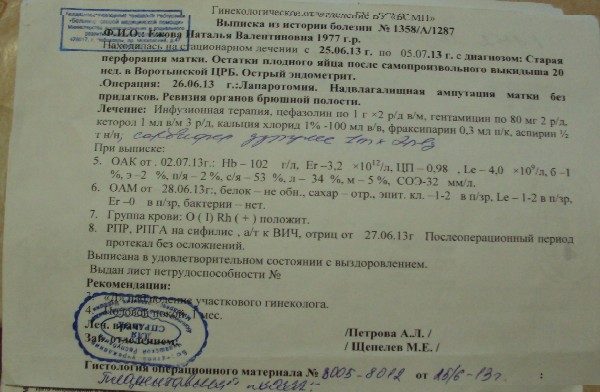 Гинекологическое отделение БУ "БСМП"
Выписка из истории болезни № 1358/А/1287
Ф.И.О. Ежова Наталья Валентиновна 1977 г.р.
Находилась на стационарном лечении с 25.06.13 г. по 05.07.13 г. с диагнозом: Старая
перфорация матки. Остатки плодного яйца после самопроизвольного выкидыша 20
нед. в Воротынской ЦРБ. Острый эндометрит.
.Операция: 26.06.13 г.:Лапаротомия. Надвлагалищная ампутация матки без
придатков. Ревизия органов брюшной полости.
Лечение: Инфузионная терапия, цефазолин по 1 г ×2 р/д в/м, гентамицин по 80 мг 2 р/д,
кеторол 1 мл в/м 3 р/д, кальция хлорид 1% -100 мл в/в, фраксипарин 0,3 мл п/к, аспирин ½
т н/н; сорбифер дурулес 1т × 2р/д
При выписке:
5. ОАК от . 02.07.13г.: Hb – 102 г/л, Er –3,2 ×10¹²/л, ЦП – 0,98 , Le – 4,0 ×10⁹/л, б –1
%, э –2 %, п/я – 2 %, с/я – 53 %, л – 34 %, м – 5 %, СОЭ-32 мм/л.
6. ОАМ от 28.06.13г:, белок – не обн., сахар – отр., эпит. кл. –1-2 в п/зр, Le – 1-2 в п/зр,
Er –0 в п/зр, бактерии – нет.
7. Группа крови: O ( I) Rh ( + ) положит.
8. РПР, РПГА на сифилис , а/т к ВИЧ, отриц от 27.06.13г Послеоперационный период
протекал без осложнений.
Выписана в удовлетворительном состоянии с выздоровлением.
Выдан лист нетрудоспособности №
Рекомендации:
«Д» наблюдение участкового гинеколога.
4. Половой покой 1 мес.
Леч. врач: /Петрова А.Л. /
Зав. отделением: / Щепелев М.Е. /
СПРАВОК
Гистология операционного материала № 8005-8012 от 26/6-13г. :